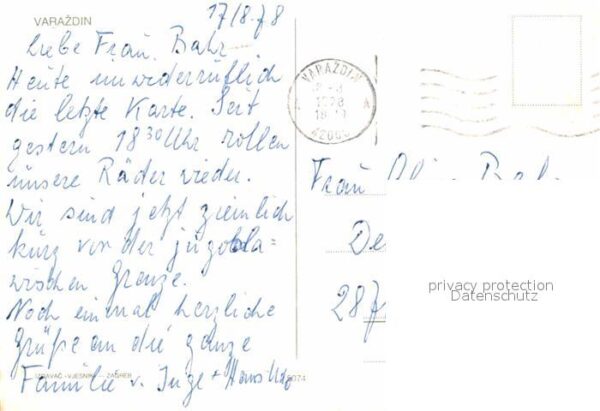 VARAŽDIN
17/8.78
Liebe Frau Bahr
Heute unwiderruflich
die letzte Karte. Seit
gestern 18³⁰ Uhr rollen
unsere Räder wieder.
Wir sind jetzt ziemlich
kurz vor der jugosla=
wischen Grenze.
Noch einmal herzliche
Grüße an die ganze
Familie v. Inge + Hans
VJESNIK - ZAGREB
VARAŽDIN
1978
18
42000
Frau
De
287
privacy protection
Datenschutz